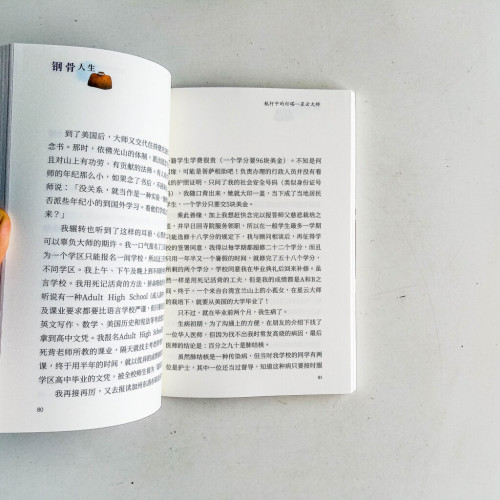 钢骨人生
到了美国后，大师又交代住持
念书。那时，依佛光山的体制，
且对山上有功劳，有贡献的法师。
师的年纪那么小，如果念了书后，不
师说：「没关系，就当作是一种实验
否派些年纪小的到国外学习。看他们
来？」
我辗转也听到了这样的耳语，心
可以辜负大师的期许。我一口气报
为一个学区只能报名一间学校，所以
不同学区。我上午、下午及晚上到不同
言学校。我用死记活背的方法，拚命
听说有一种Adult High School（成人
及课业要求都要比语言学校严谨，但
英文写作、数学、美国历史和宪法等
拿到高中文凭。我报名Adult High
死背老师所教的课业，隔天就找主
课，终于用半年的时间，就以优异的成绩
学区高中毕业的文凭。被全校师生
我再接再厉，又去报读加州
80
航行中的灯塔—星云大师
籍学生学费很贵（一个学分要96块美金）。不知是何
缘，可能是菩萨相助吧！负责办理的行政人员并没有看
的护照证明，只问了我的社会安全号码（类似身份证号
），我随口背出来，她就大印一盖，当下成了当地居民
学生，一个学分只要交5块美金。
乘此善缘，加上我想赶快念完以报答师父慈悲栽培之
，并早日回寺院服务领职，所以在一般学生最多一学期
能选修十八学分的规定下，我与顾问相谈后，再征得学
校的签署同意，我得以每学期都超修二十二个学分，而且
只用一年半又一个暑假的时间，就修完了五十八个学分，
所剩的两个学分，学校同意我在毕业典礼后回来补修。虽
然我一样是用死记活背的工夫，但是我的成绩都是A和B之
间。终于，一个来自台湾宜兰山上的小孤女，在星云大师
的栽培下，就要从美国的大学毕业了！
只不过，就在毕业前两个月，我生病了。
生病初期，为了沟通上的方便，在朋友的介绍下找了
一位华人医师，但因为找不出我时常发高烧的病因，最后
医师的结论是：百分之九十是肺结核。
虽然肺结核是一种传染病，但当时我学校的同学有两
位是护士，其中一位还当过督导，知道这种病只要按时服
81